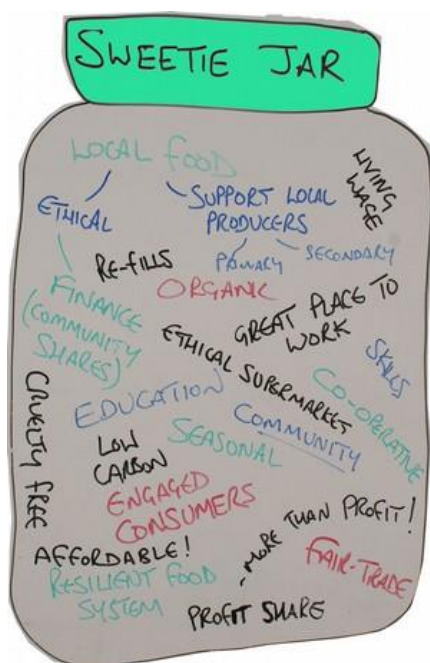 SWEETIE JAR
LOCAL FOOD
LIVING
WAGE
ETHICAL
SUPPORT LOCAL
PRODUCERS
PRIMARY
SECONDARY
RE-FILLS
ORGANIC
FINANCE
(COMMUNITY
SHARES)
GREAT PLACE TO
WORK
ETHICAL SUPERMARKET
SKILLS
CO-OPERATIVE
EDUCATION
COMMUNITY
SEASONAL
LOW
CARBON
CRUELTY FREE
ENGAGED
CONSUMERS
- MORE THAN PROFIT!
AFFORDABLE!
FAIR-TRADE
RESILIENT FOOD
SYSTEM
PROFIT SHARE